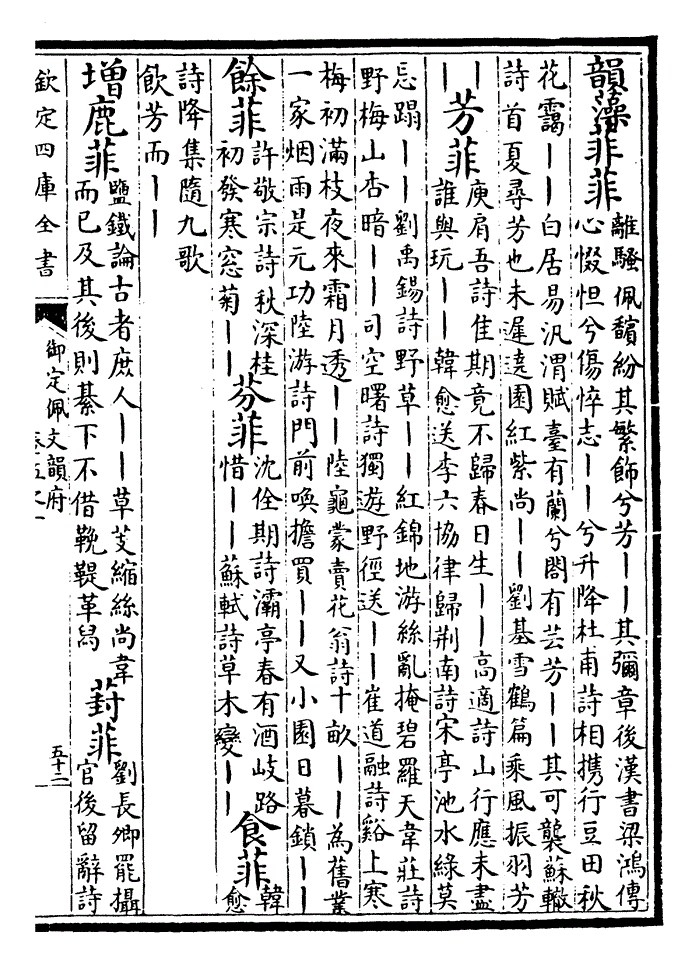 韻藻菲菲離騷佩繽紛其繁飾兮芳――其彌章後漢書梁鴻傳
心惙怛兮傷悴志――兮升降杜甫詩相攜行豆田秋
花靄――白居易汎渭賦臺有蘭兮閣有芸芳――其可襲蘇轍
詩首夏尋芳也未遲遶園紅紫尚――劉基雪鶴篇乘風振羽芳
――芳菲庾肩吾詩佳期竟不歸春日生――高適詩山行應未盡
誰與玩――韓愈送李六協律歸荆南詩宋亭池水綠莫
忘蹋――劉禹錫詩野草――紅錦地游絲亂掩碧羅天韋莊詩
野梅山杏暗――司空曙詩獨遊野徑送――崔道融詩谿上寒
梅初滿枝夜來霜月透――陸龜蒙賣花翁詩十畝――為舊業
一家烟雨是元功陸游詩門前喚擔買――又小園日暮鎖――
餘菲許敬宗詩秋深桂
初發寒窓菊――
芬菲沈佺期詩灞亭春有酒岐路
惜――蘇軾詩草木變――
食菲韓
愈
詩降集隨九歌
飲芳而――
增鹿菲鹽鐵論古者庶人――草芰縮絲尚韋
而已及其後則綦下不借鞔鞮革舄
葑菲劉長卿罷攝
官後留辭詩
欽定四庫全書
御定佩文韻府
卷五之一
五十二